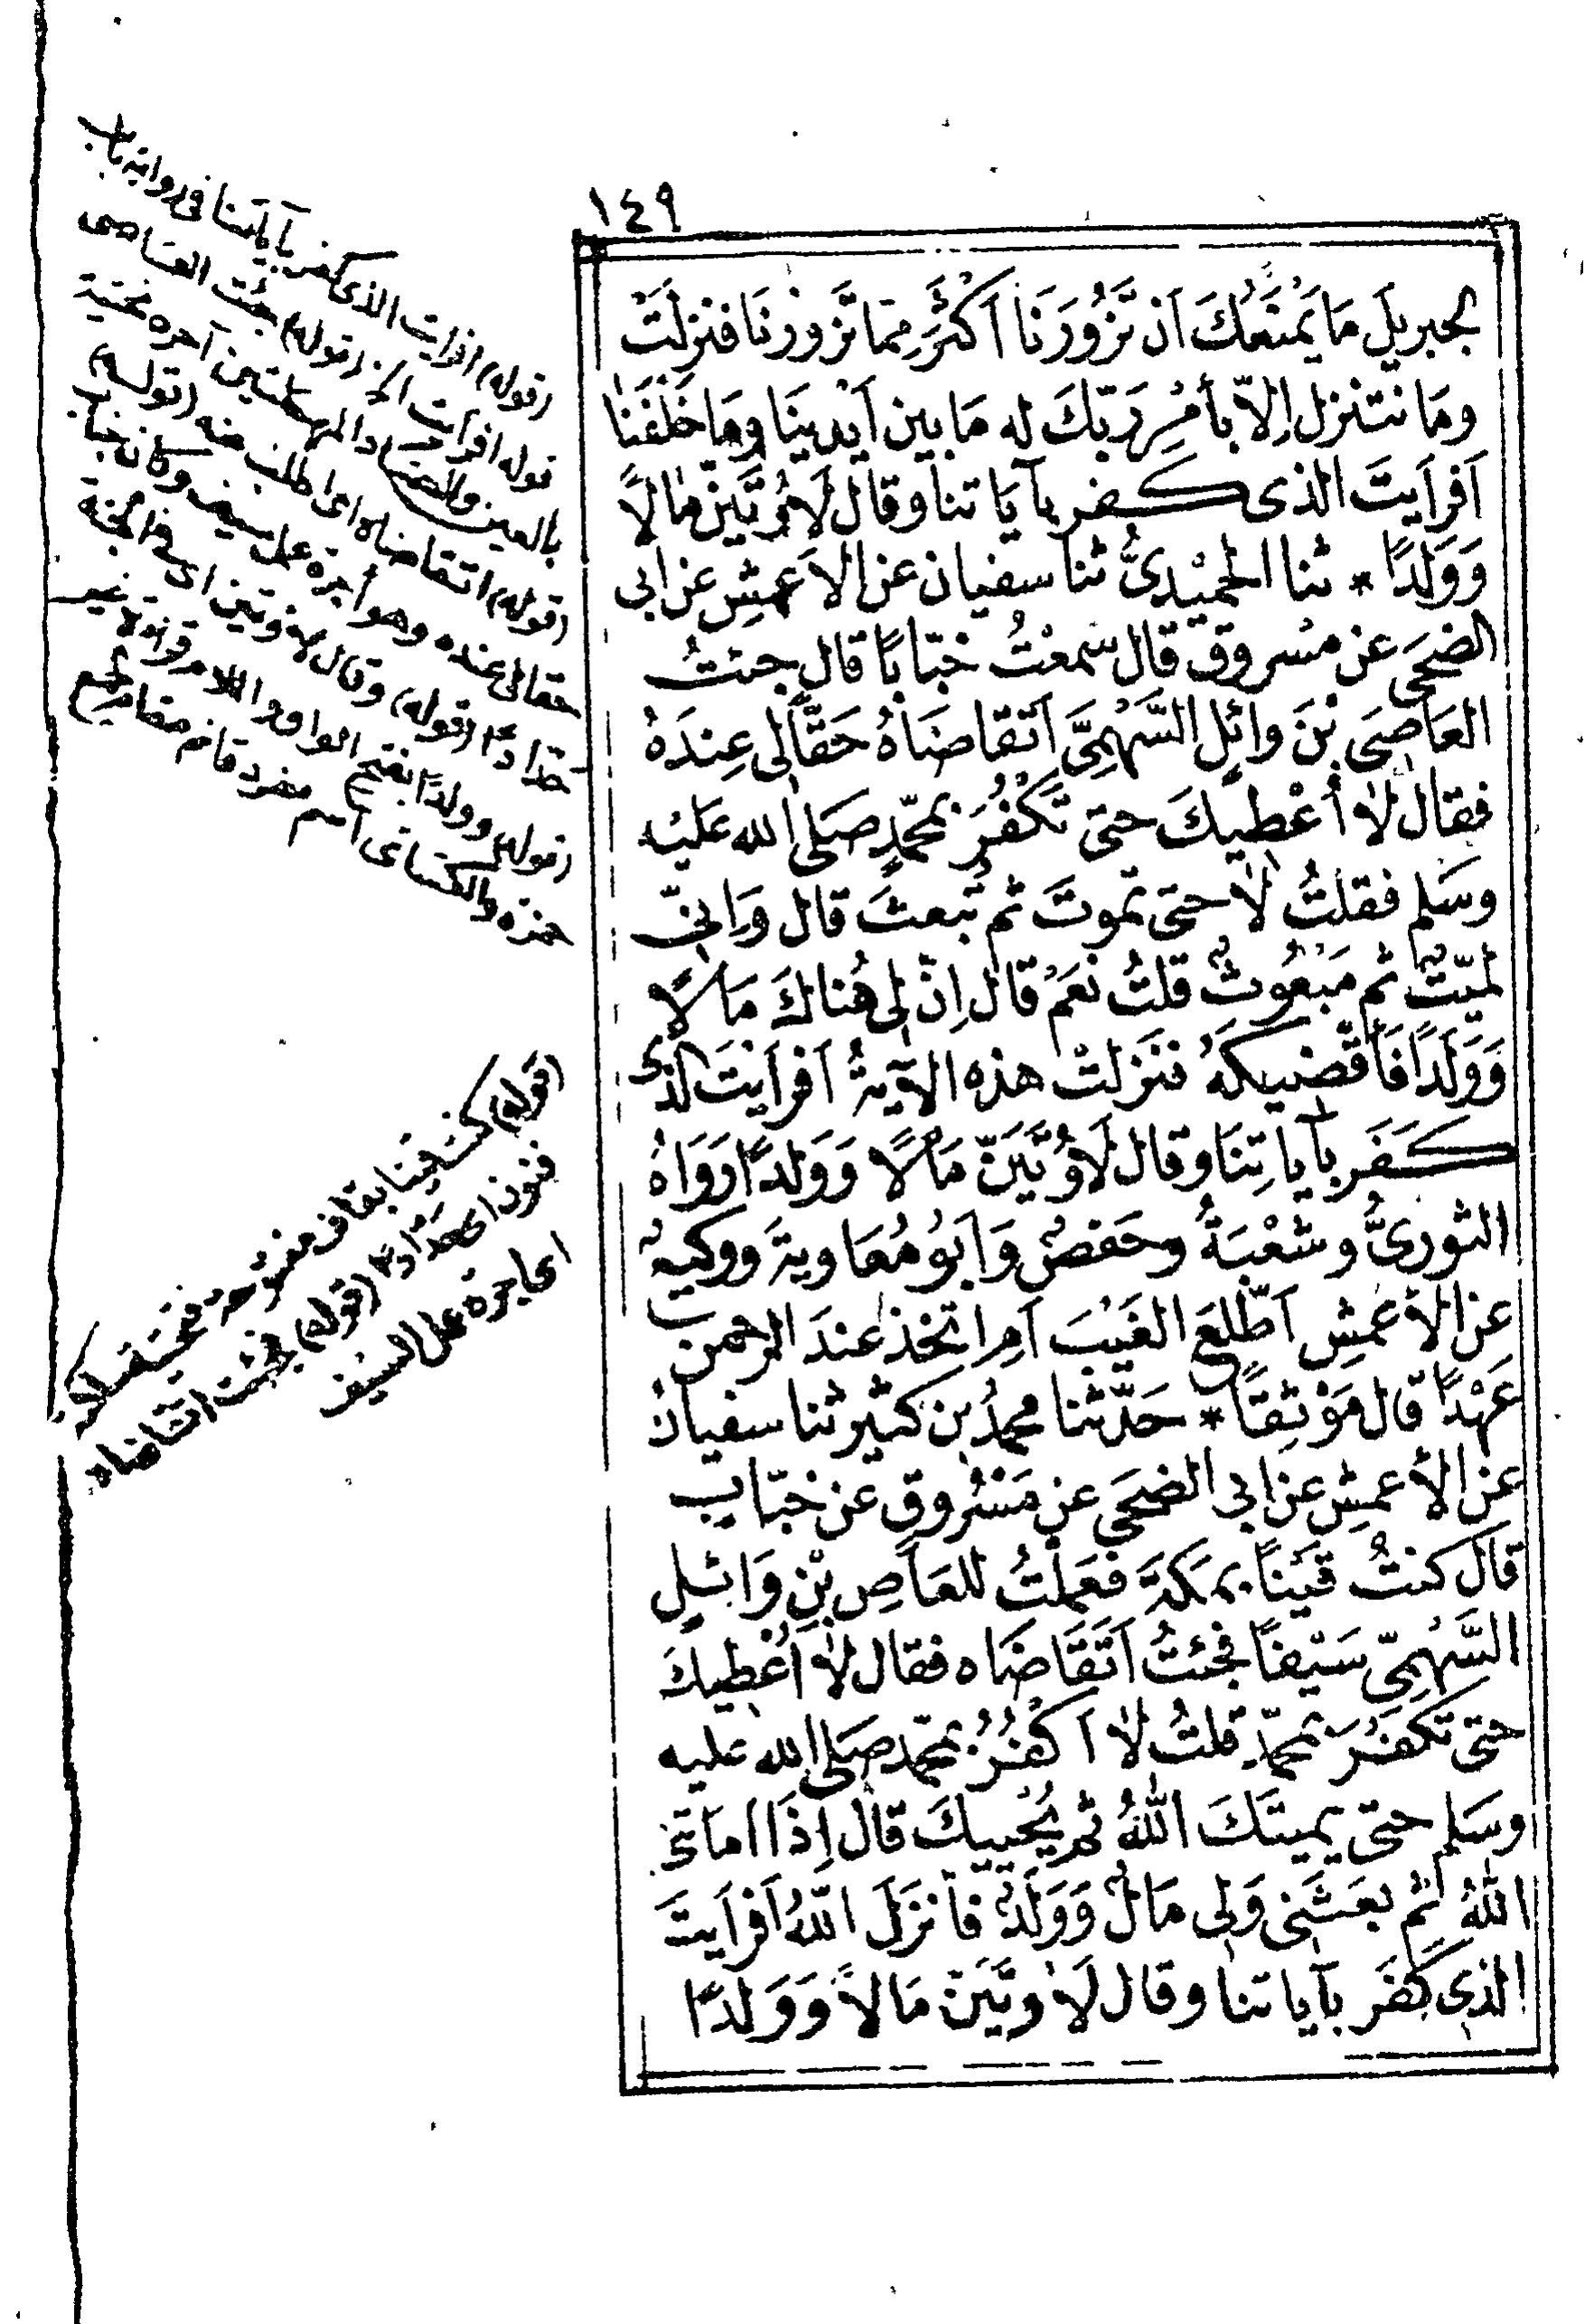 ١٤٩
لجبريل مَا يَمْنَعُكَ اَن تَزُورَنَا اَكْثَرَ مِمَّا تَزُورُنَا فنزلَتْ
ومَا نتنزل اِلاّ بأمْرِ رَبّكَ له مَا بين اَيْدينَا ومَا خَلْفَنَا
اَفَرَاَيتَ الذى كفر بآيَاتنا وقال لَاُوتَيَنّ مالاً
وَوَلدًا * ثنا الحمَيْدِىُّ ثنا سفيان عن الاَعمشِ عن ابى
الضحَى عن مسْروق قال سمعْتُ خبّابًا قال جئتُ
العَاصِىَ بْنَ وائلٍ السَّهْمِىَّ اَتَقاضَاهُ حَقًّا لى عِندَهُ
فقال لاَ أُعْطِيكَ حتى تَكْفُرَ بمحمّدٍ صَلى الله عَليْه
وسَلم فقلتُ لاَ حتى تموتَ ثم تُبعثَ قال وَاِنّى
لميّتٌ ثم مَبْعُوثٌ قلتُ نعَمْ قال اِنّ لى هُناكَ مَالاً
وَوَلَدًا فَاَقْضيكَهُ فنَزلَتْ هذه الآيةُ اَفرَاَيتَ الذى
كَفَرَ بآياتِنَا وقال لَاُوتَيَنّ مَالاً وَوَلدًا رَوَاهُ
الثورىُّ وشُعْبَةُ وحَفصٌ وَاَبُو مُعَاويةَ ووكيعٌ
عن الأعمشِ اَطّلعَ الغَيْبَ اَمِ اتخذ عندَ الرحمن
عَهْدًا قال مَوْثِقًا * حَدّثنا محمدُ بن كثيرٍ ثنا سفيانُ
عن الأعمشِ عن ابى الضحَى عن مَسْروقٍ عن خبّابٍ
قال كنتُ قَيْنًا بمكةَ فعَمِلْتُ للعَاصِ بْنِ وَائلٍ
السَّهْمِىّ سَيْفًا فجئتُ اَتَقَاضَاه فقال لاَ اُعْطِيكَ
حتى تكفُرَ بمحمّدٍ قلتُ لاَ اَكْفُرُ بمحمّد صَلى الله عليه
وسَلم حتى يميتَكَ اللّهُ ثم يُحْييكَ قال اِذَا اماتنى
اللّهُ ثم بعَثَنى وَلى مَالٌ وَوَلَدٌ فأنزَلَ اللّهُ اَفرَاَيتَ
الذى كَفَر بآياتنا وقال لَاُوتَيَنّ مَالاً وَوَلدًا
(قوله) افرايت الذى كفر بآياتنا فى رواية باب
قوله افرايت الخ (قوله) جئت العاصى
بالعين والصاد المهملتين آخره تحتية
(قوله) اتقاضاه اى اطلب منه (قوله)
حقا لى عنده وهو أجرة عمل سيف وكان خباب
حدادًا (قوله) وقال لاوتين اى فى الجنة
(قوله) وولدًا بفتح الواو واللام قراءة غير
حمزه والكسائى اسم مفرد قائم مقام الجمع
(قوله) كنت قينا بقاف مفتوحة فتحتية ساكنة
فنون اى حدّادًا (قوله) فجئت اتقاضاه
اى اجرة عمل السيف